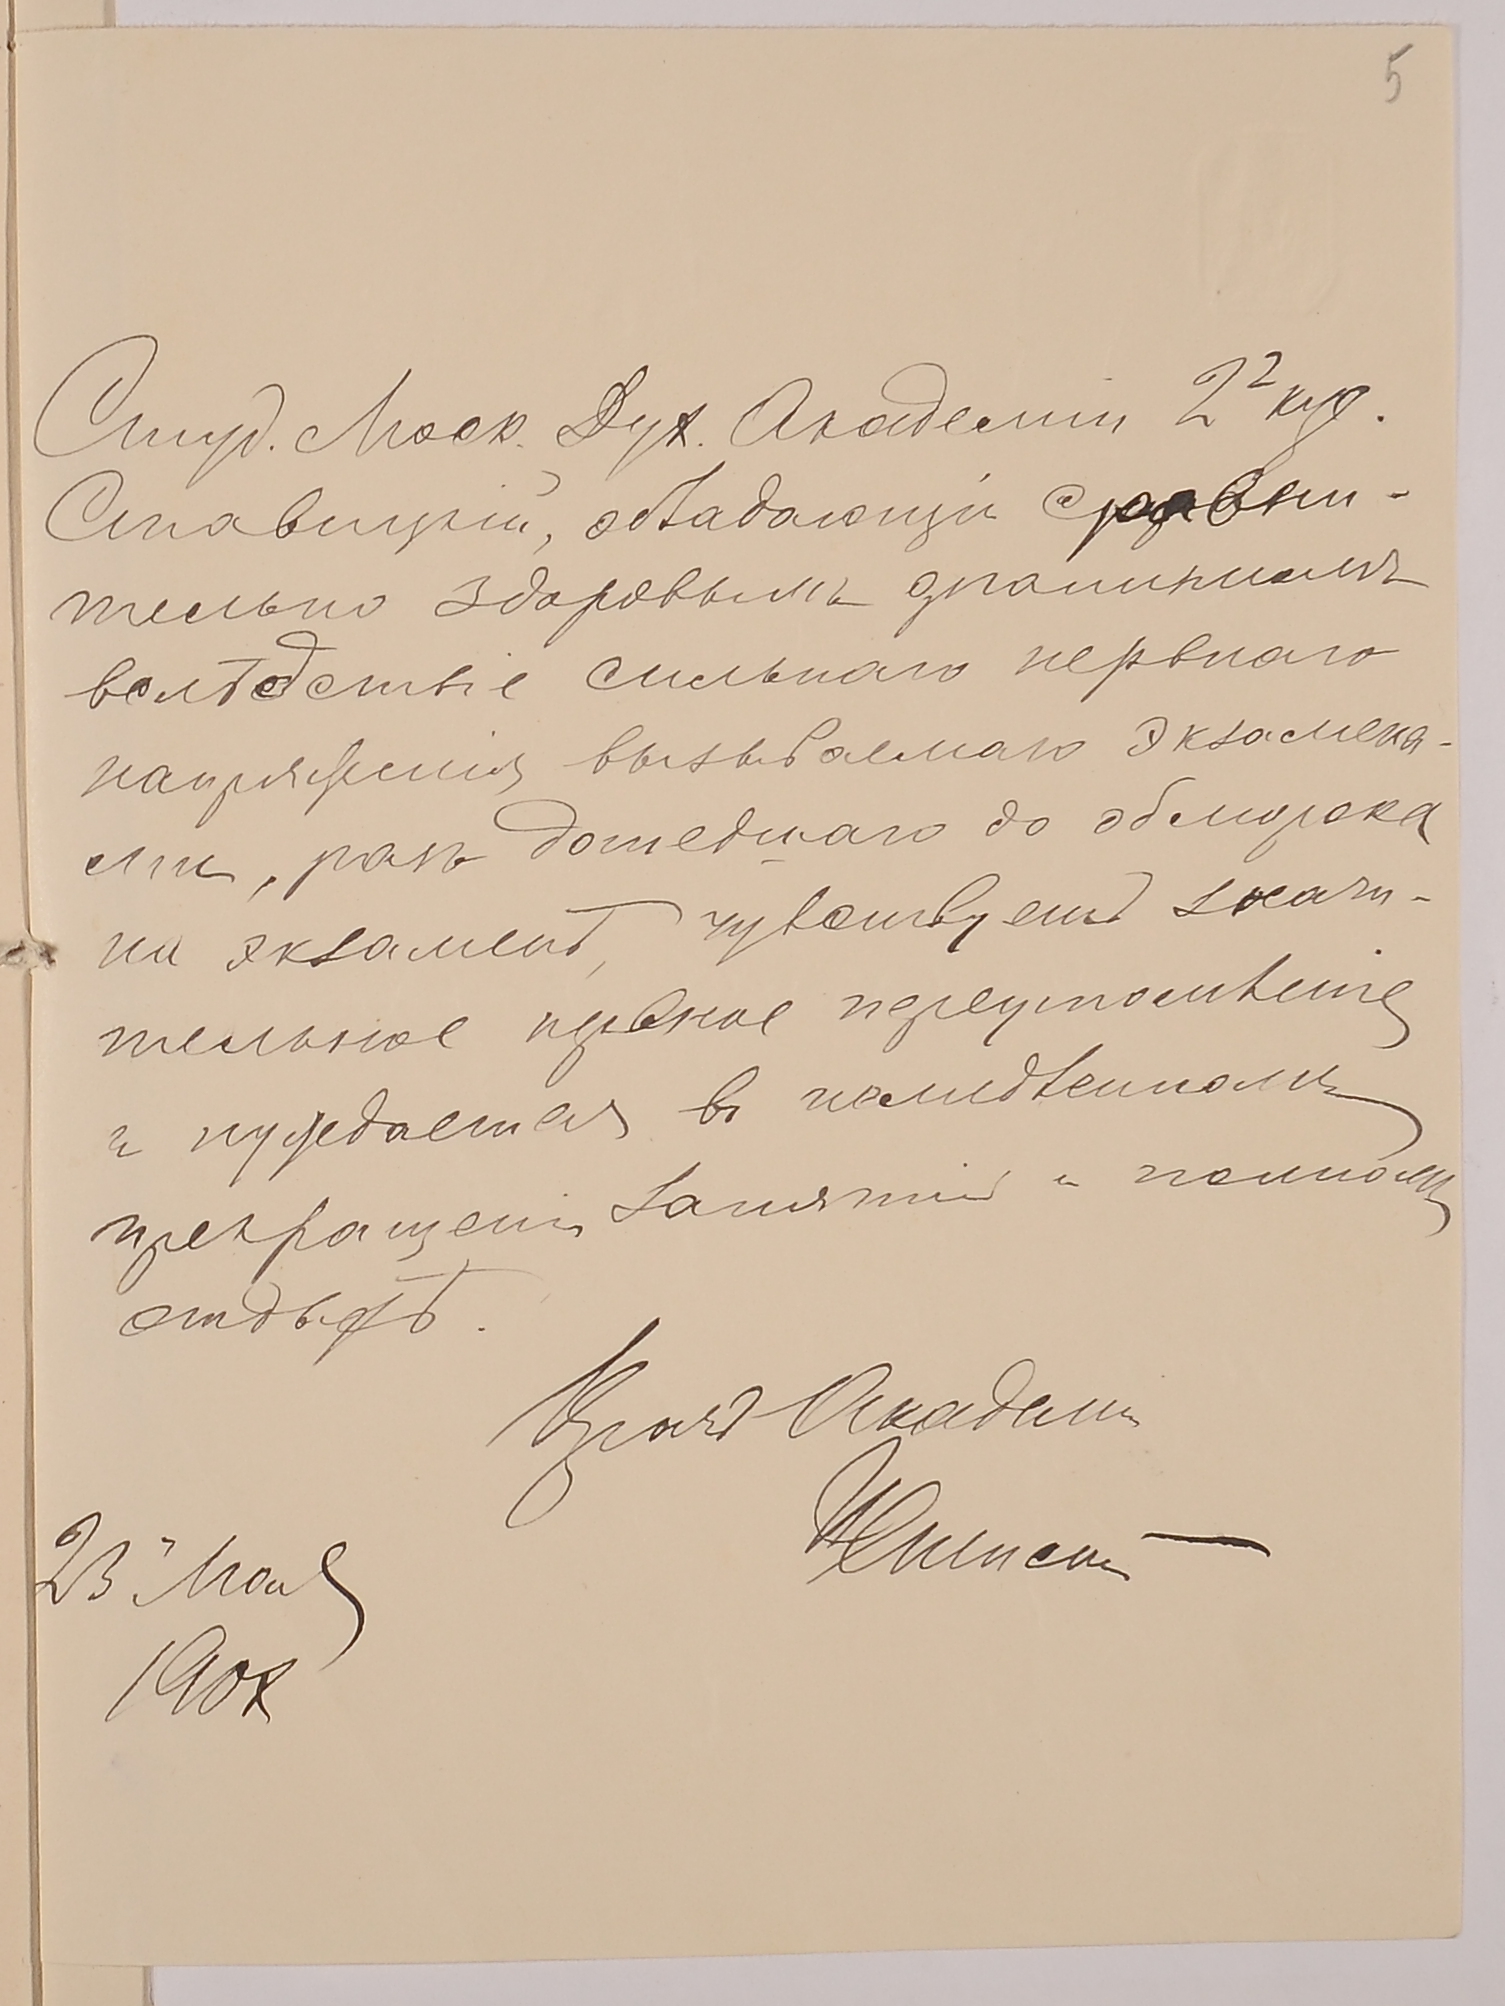 5
Студ. Моск. Дух. Академіи 2г кур.
Ставицкій, обладающій сравни-
тельно здоровымъ организмомъ
вслѣдствіе сильнаго нервнаго
напряженія вызываемаго экзамена-
ми, разъ дошедшаго до обморока
на экзаменѣ, чувствуетъ значи-
тельное нервное переутомленіе
и нуждается въ немедленномъ
прекращеніи занятій и полномъ
отдыхѣ.
Врачъ Академіи
23 Мая
190